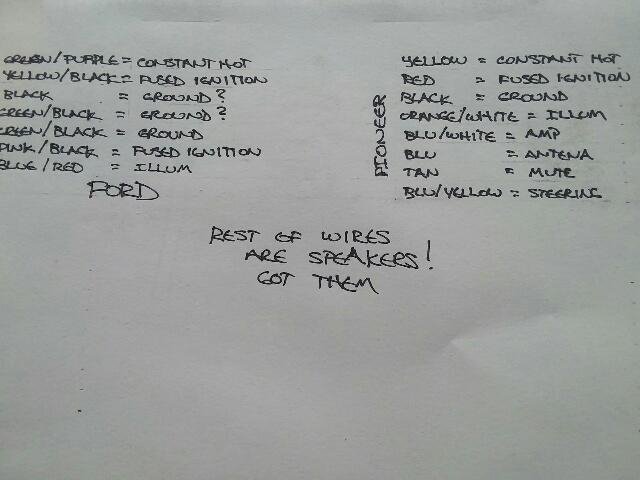 GREEN/PURPLE = CONSTANT HOT
YELLOW/BLACK = FUSED IGNITION
BLACK = GROUND?
GREEN/BLACK = GROUND?
GREEN/BLACK = GROUND
PINK/BLACK = FUSED IGNITION
BLUE/RED = ILLUM
FORD
YELLOW = CONSTANT HOT
RED = FUSED IGNITION
BLACK = GROUND
ORANGE/WHITE = ILLUM
BLU/WHITE = AMP
BLU = ANTENA
TAN = MUTE
BLU/YELLOW = STEERING
PIONEER
REST OF WIRES
ARE SPEAKERS!
GOT THEM